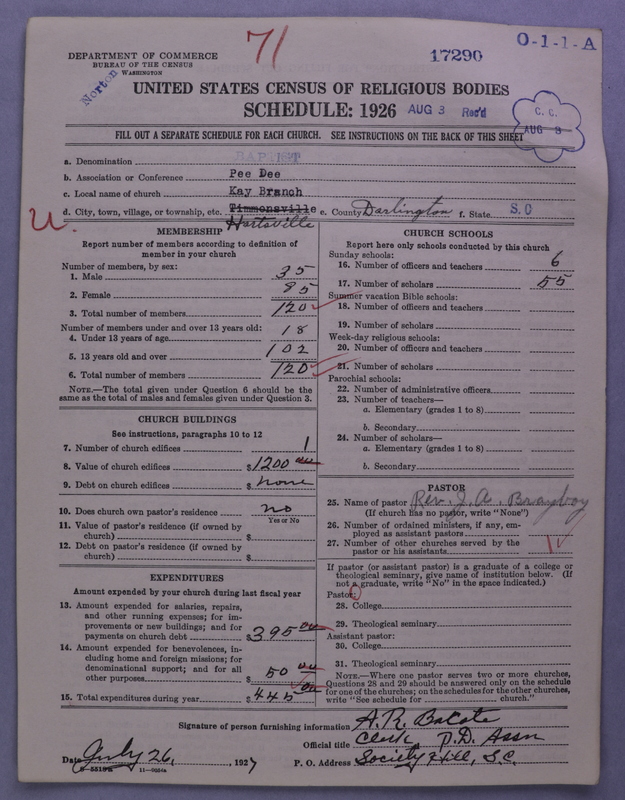 71
17290
O-1-1-A
DEPARTMENT OF COMMERCE
BUREAU OF THE CENSUS
WASHINGTON
Norton
UNITED STATES CENSUS OF RELIGIOUS BODIES
SCHEDULE: 1926
AUG 3 Rec'd
C. C.
AUG 3
FILL OUT A SEPARATE SCHEDULE FOR EACH CHURCH. SEE INSTRUCTIONS ON THE BACK OF THIS SHEET
a. Denomination BAPTIST
b. Association or Conference Pee Dee
c. Local name of church Kay Branch
d. City, town, village, or township, etc. Timmonsville e. County Darlington f. State S. C
Hartsville
U.
MEMBERSHIP
Report number of members according to definition of
member in your church
Number of members, by sex:
1. Male 35
2. Female 85
3. Total number of members 120
Number of members under and over 13 years old:
4. Under 13 years of age 18
5. 13 years old and over 102
6. Total number of members 120
NOTE.—The total given under Question 6 should be the
same as the total of males and females given under Question 3.
CHURCH BUILDINGS
See instructions, paragraphs 10 to 12
7. Number of church edifices 1
8. Value of church edifices $1200 00
9. Debt on church edifices $ none
10. Does church own pastor's residence no
Yes or No
11. Value of pastor's residence (if owned by
church) $
12. Debt on pastor's residence (if owned by
church) $
EXPENDITURES
Amount expended by your church during last fiscal year
13. Amount expended for salaries, repairs,
and other running expenses; for im-
provements or new buildings; and for
payments on church debt $395 00
14. Amount expended for benevolences, in-
cluding home and foreign missions; for
denominational support; and for all
other purposes $ 50 00
15. Total expenditures during year $445 00
CHURCH SCHOOLS
Report here only schools conducted by this church
Sunday schools:
16. Number of officers and teachers 6
17. Number of scholars 55
Summer vacation Bible schools:
18. Number of officers and teachers
19. Number of scholars
Week-day religious schools:
20. Number of officers and teachers
21. Number of scholars
Parochial schools:
22. Number of administrative officers
23. Number of teachers—
a. Elementary (grades 1 to 8)
b. Secondary
24. Number of scholars—
a. Elementary (grades 1 to 8)
b. Secondary
PASTOR
25. Name of pastor Rev. J. A. Brayboy
(If church has no pastor, write "None")
26. Number of ordained ministers, if any, em-
ployed as assistant pastors
27. Number of other churches served by the
pastor or his assistants 1
If pastor (or assistant pastor) is a graduate of a college or
theological seminary, give name of institution below. (If
not a graduate, write "No" in the space indicated.)
Pastor:
28. College
29. Theological seminary
Assistant pastor:
30. College
31. Theological seminary
NOTE.—Where one pastor serves two or more churches,
Questions 28 and 29 should be answered only on the schedule
for one of the churches; on the schedules for the other churches,
write "See schedule for church."
Signature of person furnishing information A. R. Bacote
Official title Clerk P. D. Assn
Date July 26, 1927 P. O. Address Society Hill, S.C.
11—0024a